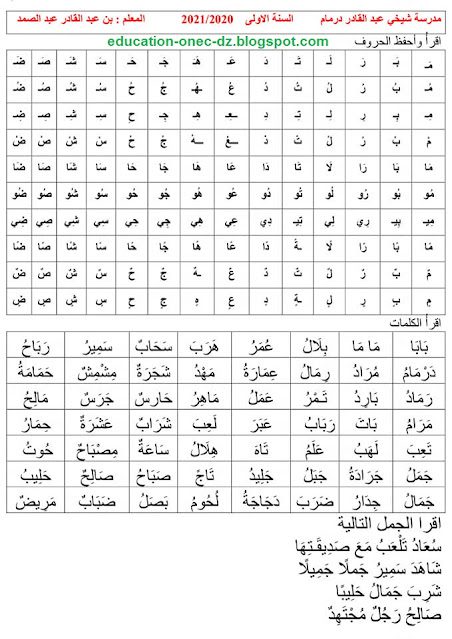 مدرسة شيخي عبد القادر درمام السنة الاولى 2021/2020 المعلم : بن عبد القادر عبد الصمد
education-onec-dz.blogspot.com
اقرأ وأحفظ الحروف
مَـ بَـ رَ لَـ تَـ دَ عَـ هَـ جَـ حَـ سَـ شَـ صَـ ضَـ
مُـ بُـ رُ لُـ تُـ دُ عُـ ـهُـ جُـ حُـ سُـ شُـ صُـ ضُـ
مِـ بِـ رِ لِـ تِـ دِ ـعِـ هِـ جِـ حِـ سِـ شِـ صِـ ضِـ
مْ بْ رْ لْ تْ دْ ـعْـ ـهْـ جْ حْ سْ شْ صْ ضْ
مَا بَا رَا لَا تَا دَا عَا هَا جَا حَا سَا شَا صَا ضَا
مُو بُو رُو لُو تُو دُو عُو هُو جُو حُو سُو شُو صُو ضُو
مِيـ بِيـ رِي لِي تِيـ دِي عِي هِي جِي حِي سِي شِي صِي ضِي
مًا بًا رًا لًا ـةً دًا عًا هًا جًا حًا سًا شًا صًا ضًا
مٌ بٌ رٌ لٌ ـةٌ دٌ عٌ ـهٌ جٌ حٌ سٌ شٌ صٌ ضٌ
مٍ بٍ رٍ لٍ ـةٍ دٍ عٍ هٍ جٍ حٍ سٍ شٍ صٍ ضٍ
اقرأ الكلمات
بَابَا مَا مَا بِلَالُ عُمَرُ هَرَبَ سَحَابٌ سَمِيرُ رَبَاحُ
دَرْمَامُ مُرَادُ رِمَالُ عِمَارَةُ مَهْدُ شَجَرَةٌ مِشْمِشٌ حَمَامَةُ
رَمَادُ بَارِدُ تَـمْـرُ عَمَلُ مَاهِرُ حَارِسٌ جَرَسٌ مَالِحُ
مَرَامُ بَاتَ رَبَابُ عَبَرَ لَعِبَ شَرَابٌ عَشَرَةٌ حِمَارُ
تَعِبَ لَهَبُ عَلَمُ تَاهَ هِلَالُ سَاعَةٌ مِصْبَاحٌ حُوتُ
جَمَلُ جَرَادَةُ جَبَلُ جَلِيدُ تَاجٌ صَبَاحٌ صَالِحٌ حَلِيبُ
جَمَالُ جِدَارُ ضَرَبَ دَجَاجَةُ لُحُومُ بَصَلُ ضَبَابٌ مَرِيضٌ
اقرا الجمل التالية
سُعَادُ تَلْعَبُ مَعَ صَدِيقَـتِهَا
شَاهَدَ سَمِيرُ جَملًا جَمِيلًا
شَرِبَ جَمَالُ حَلِيبًا
صَالِحُ رَجُلٌ مُجْتَهِدٌ